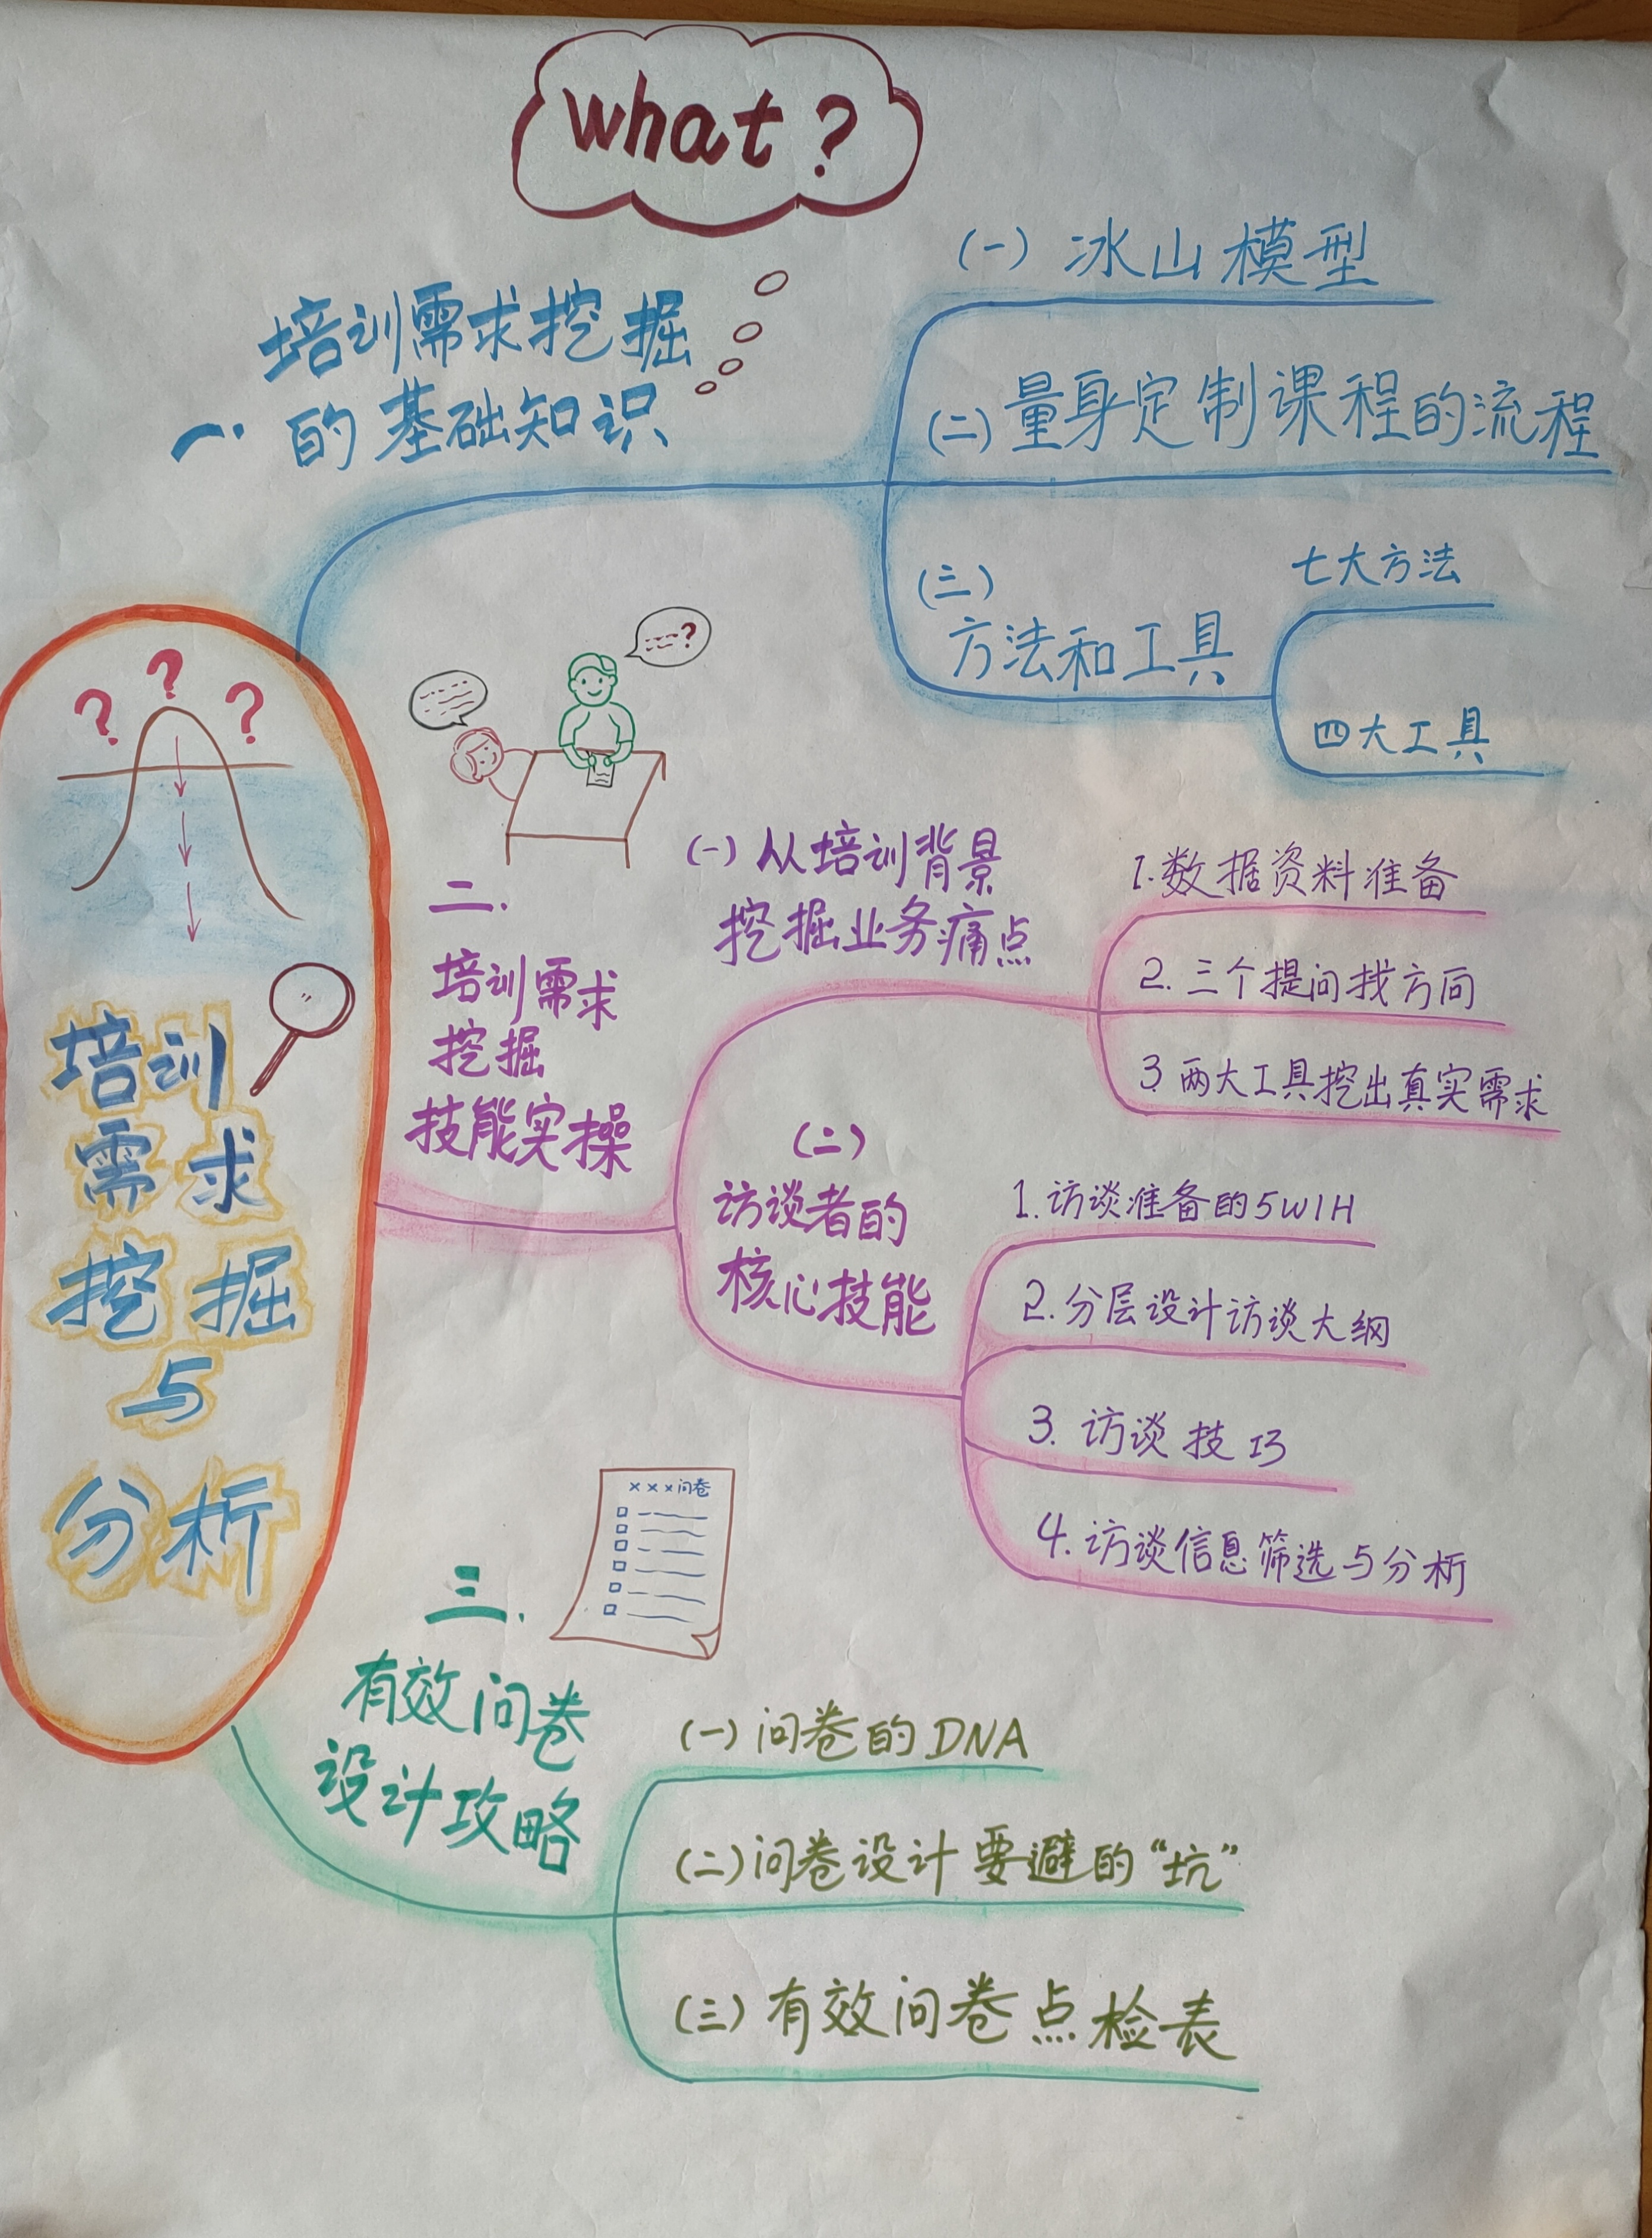 what?
培训
需求
挖掘
与
分析
一.
培训需求挖掘
的基础知识
(一) 冰山模型
(二) 量身定制课程的流程
(三)
方法和工具
七大方法
四大工具
二.
培训需求
挖掘
技能实操
(一) 从培训背景
挖掘业务痛点
1.数据资料准备
2.三个提问找方向
3 两大工具挖出真实需求
(二)
访谈者的
核心技能
1.访谈准备的5W1H
2.分层设计访谈大纲
3.访谈技巧
4.访谈信息筛选与分析
×××问卷
三.
有效问卷
设计攻略
(一)问卷的DNA
(二)问卷设计要避的“坑”
(三)有效问卷点检表